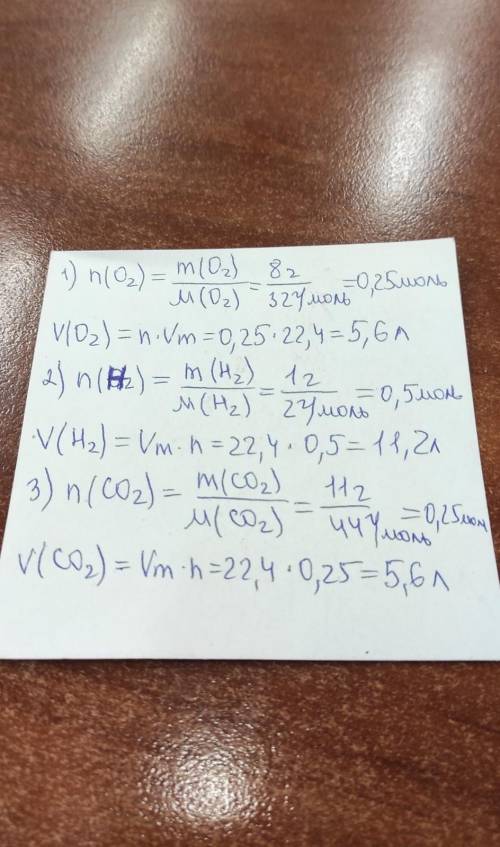 1) n(O₂) = m(O₂)/M(O₂) = 8г/32г/моль = 0,25моль
V(O₂) = n·Vm = 0,25·22,4 = 5,6л
2) n(H₂) = m(H₂)/M(H₂) = 1г/2г/моль = 0,5моль
·V(H₂) = Vm·n = 22,4·0,5 = 11,2л
3) n(CO₂) = m(CO₂)/M(CO₂) = 11г/44г/моль = 0,25моль
V(CO₂) = Vm·n = 22,4·0,25 = 5,6л